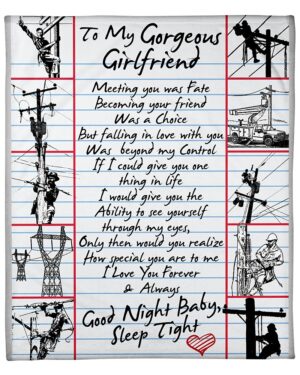 To My Gorgeous
Girlfriend
Meeting you was Fate
Becoming your friend
Was a Choice
But falling in love with you
Was beyond my Control
If I could give you one
thing in life
I would give you the
Ability to see yourself
through my eyes,
Only then would you realize
How special you are to me
I Love You Forever
& Always
Good Night Baby,
Sleep Tight